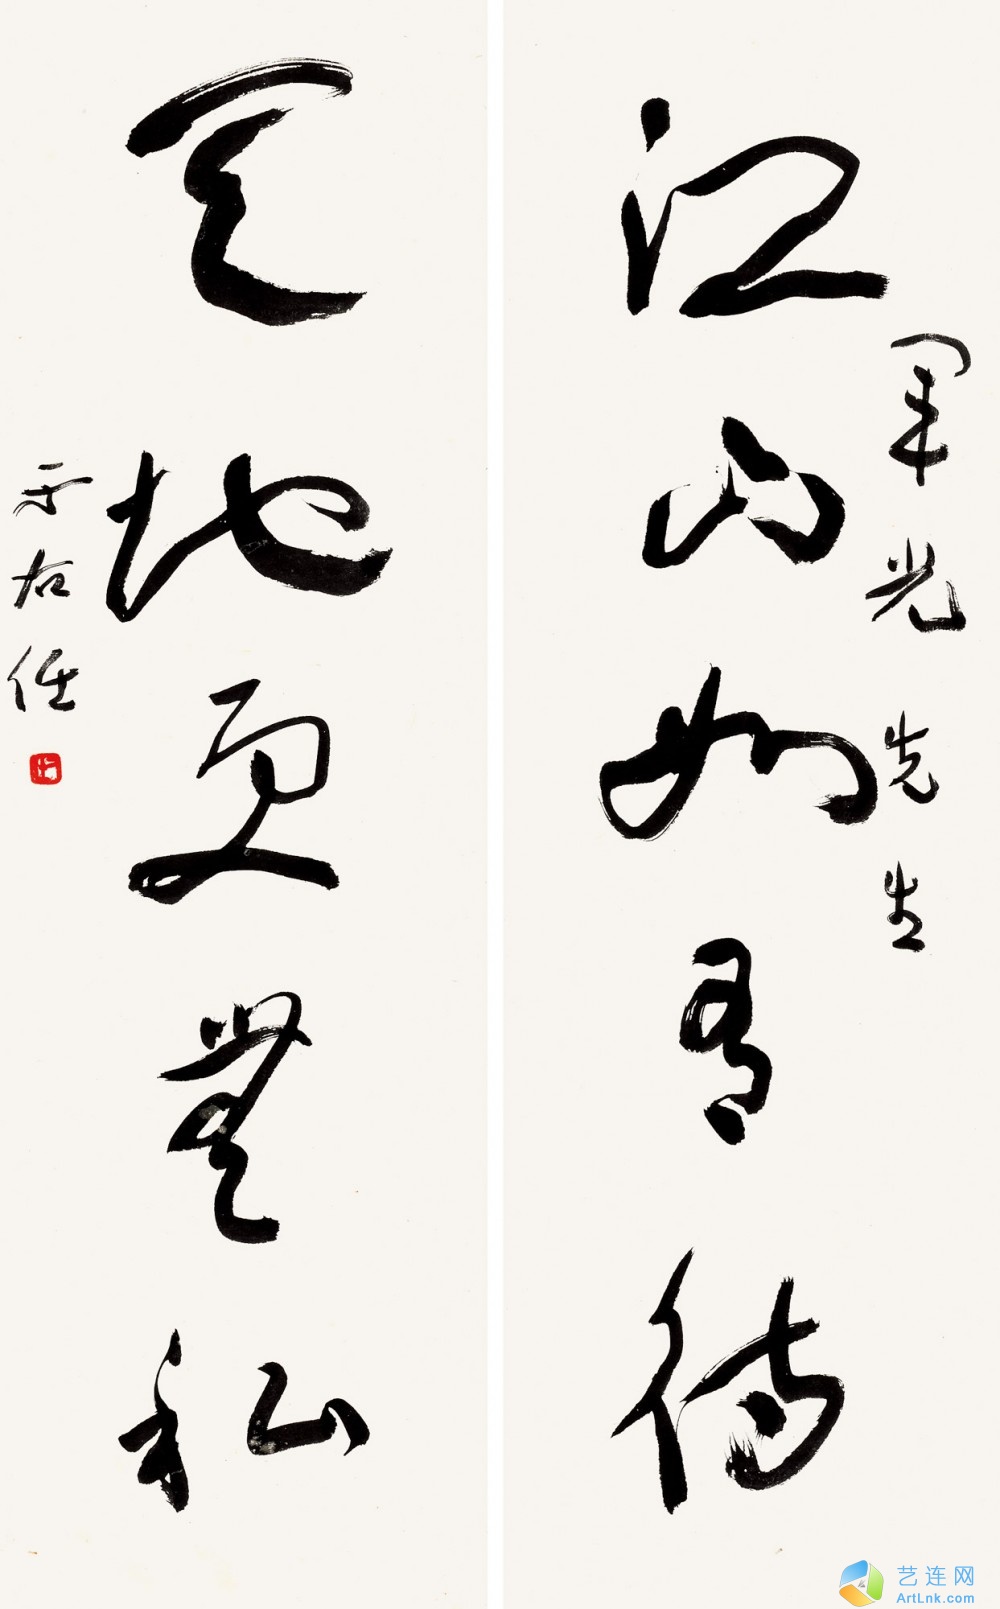 江山如有待
軍光先生
天地更無私
于右任
艺连网
ArtLnk.com